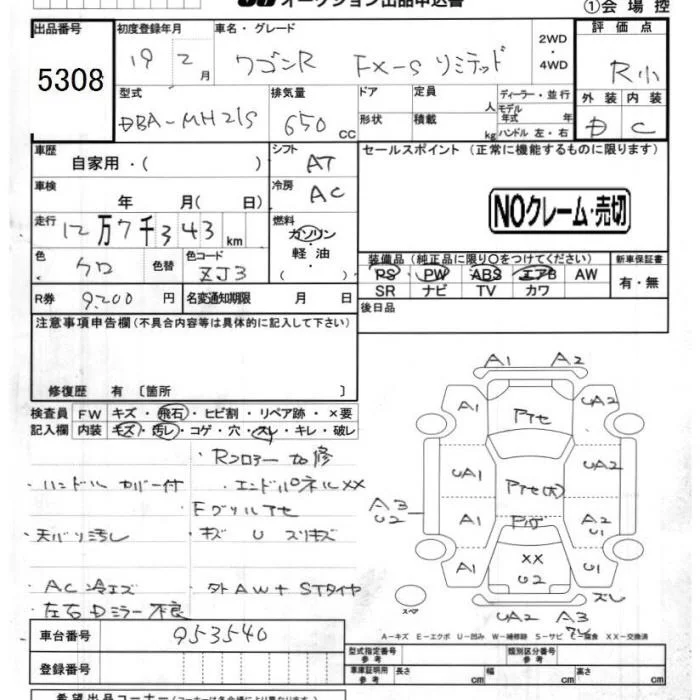 オークション出品申込書
①会場控
出品番号
5308
初度登録年月
19年 2月
車名・グレード
ワゴンR FX-S リミテッド
2WD
・
4WD
評価点
R小
外装 内装
D C
型式
DBA-MH21S
排気量
650 cc
ドア
形状
定員
人
積載
kg
ディーラー・並行
モデル年式 年
ハンドル 左・右
車歴
自家用・( )
シフト
AT
車検
年 月( 日)
冷房
AC
走行
12万7千343 km
燃料
ガソリン
軽油
( )
色
クロ
色替
色コード
ZJ3
R券
9,200 円
名変通知期限 月 日
セールスポイント(正常に機能するものに限ります)
NOクレーム・売切
装備品(純正品に限り○をつけてください)
PS PW ABS エアB AW
SR ナビ TV カワ
新車保証書
有・無
後日品
注意事項申告欄(不具合内容等は具体的に記入して下さい)
修復歴 有〔箇所 〕
検査員記入欄
FW キズ・飛石・ヒビ割・リペア跡・×要
内装 キズ・汚レ・コゲ・穴・スレ・キレ・破レ
・Rフロアー加修
・ハンドルカバー付
・エンドパネルXX
・天バリ汚レ
・キズ U スリキズ
・AC冷エズ
・外AW+STタイヤ
・左右Dミラー不良
A1 A2
A1 UA2
UA1 UA2
A3
U2
A1 A2
U1
A1 U1
XX
U2
スペア
スレ
UA2 A3
A-キズ E-エクボ U-凹み W-補修跡 S-サビ C-腐食 XX-交換済
車台番号
953540
登録番号
型式指定番号
参考
類別区分番号
参考
車庫証明用
参考
長さ cm
幅 cm
高さ cm
希望出品コーナー